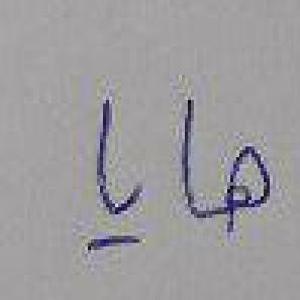 هايا